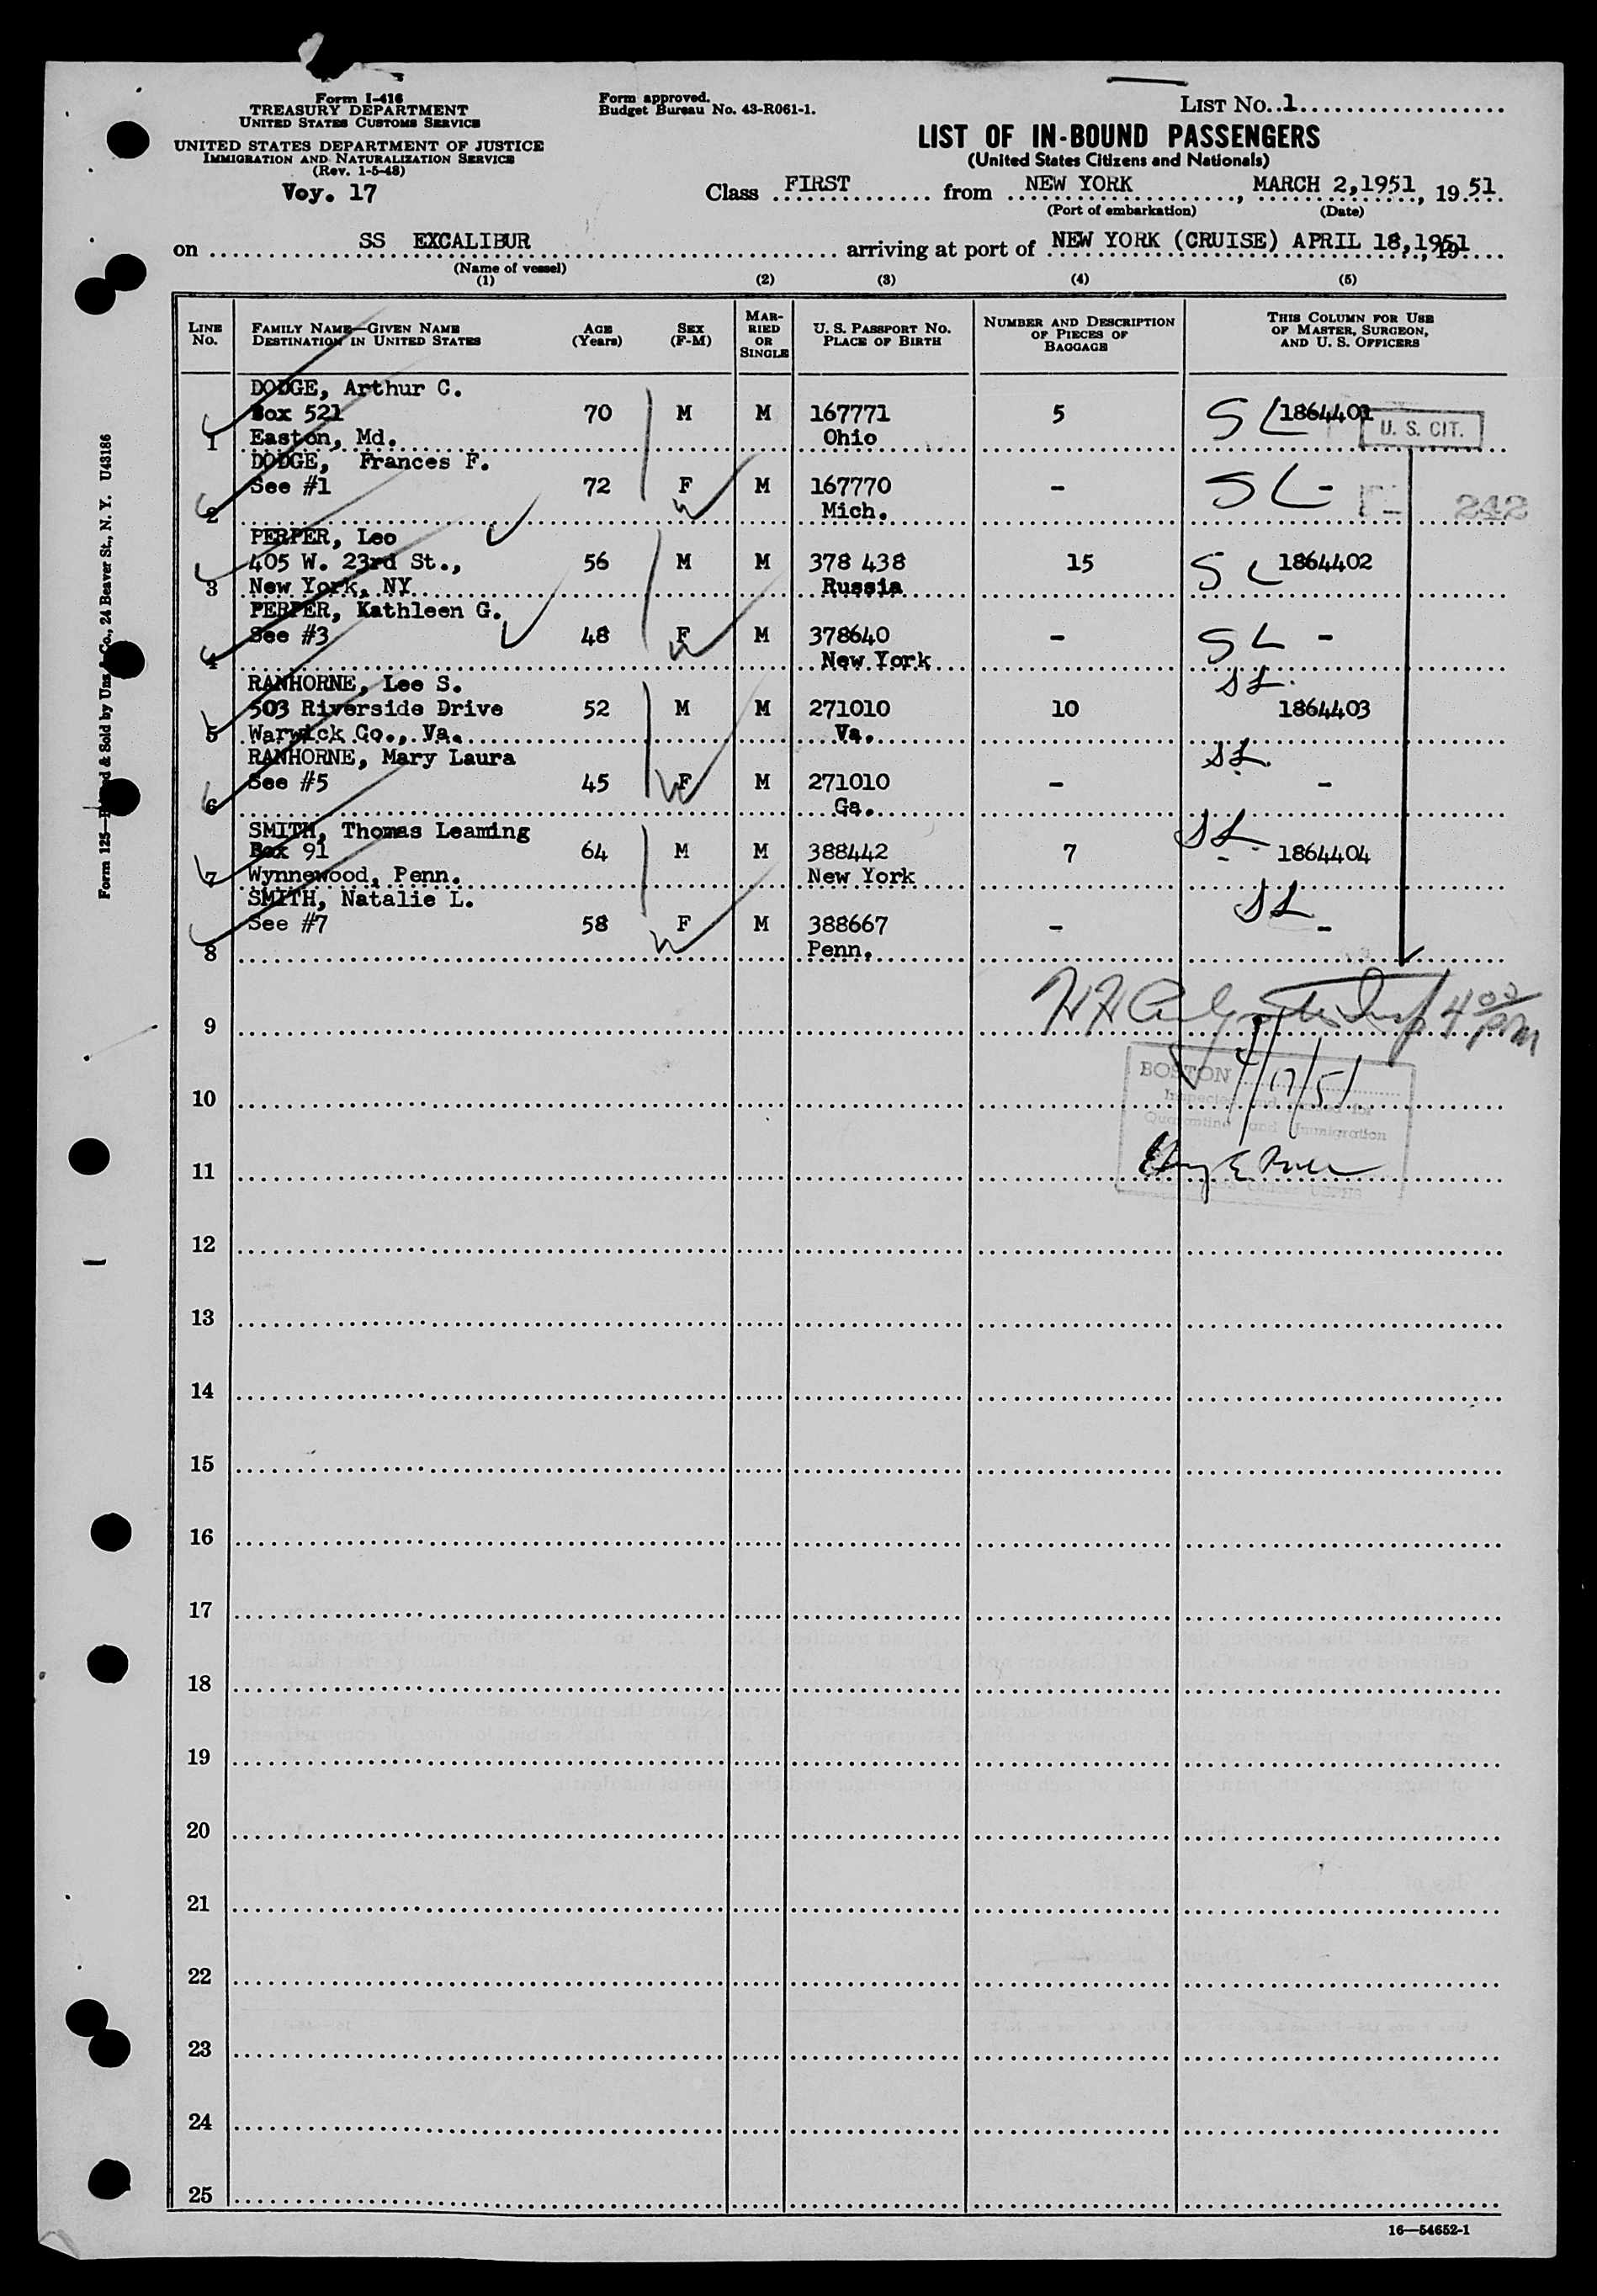 Form I-416
TREASURY DEPARTMENT
UNITED STATES CUSTOMS SERVICE
UNITED STATES DEPARTMENT OF JUSTICE
IMMIGRATION AND NATURALIZATION SERVICE
(Rev. 1-5-48)
Voy. 17
Form approved.
Budget Bureau No. 43-R061-1.
LIST NO. 1
LIST OF IN-BOUND PASSENGERS
(United States Citizens and Nationals)
Class FIRST from NEW YORK, MARCH 2,1951, 19 51
(Port of embarkation) (Date)
on SS EXCALIBUR arriving at port of NEW YORK (CRUISE) APRIL 18,1951, 19
(Name of vessel)
(1) (2) (3) (4) (5)
LINE NO. FAMILY NAME—GIVEN NAME DESTINATION IN UNITED STATES AGE (Years) SEX (F-M) MARRIED OR SINGLE U. S. PASSPORT NO. PLACE OF BIRTH NUMBER AND DESCRIPTION OF PIECES OF BAGGAGE THIS COLUMN FOR USE OF MASTER, SURGEON, AND U. S. OFFICERS
DODGE, Arthur C.
Box 521 70 M M 167771 5 SL 1864401
1 Easton, Md. Ohio U. S. CIT.
DODGE, Frances F.
See #1 72 F M 167770 - SL -
2 Mich. 242
PERPER, Leo
405 W. 23rd St., 56 M M 378 438 15 SL 1864402
3 New York, NY Russia
PERPER, Kathleen G.
See #3 48 F M 378640 - SL -
4 New York
RANHORNE, Lee S. SL.
503 Riverside Drive 52 M M 271010 10 1864403
5 Warwick Co., Va. Va.
RANHORNE, Mary Laura SL.
See #5 45 F M 271010 - -
6 Ga.
SMITH, Thomas Leaming SL.
Box 91 64 M M 388442 7 - 1864404
7 Wynnewood, Penn. New York
SMITH, Natalie L. SL
See #7 58 F M 388667 - -
8 Penn.
9 Insp 4 00 PM
BOSTON 4/17/51
10 Inspected and passed for
Quarantine and Immigration
11
12
13
14
15
16
17
18
19
20
21
22
23
24
25
16—54652-1
Form 125— & Sold by Unz & Co., 24 Beaver St., N. Y. U43186